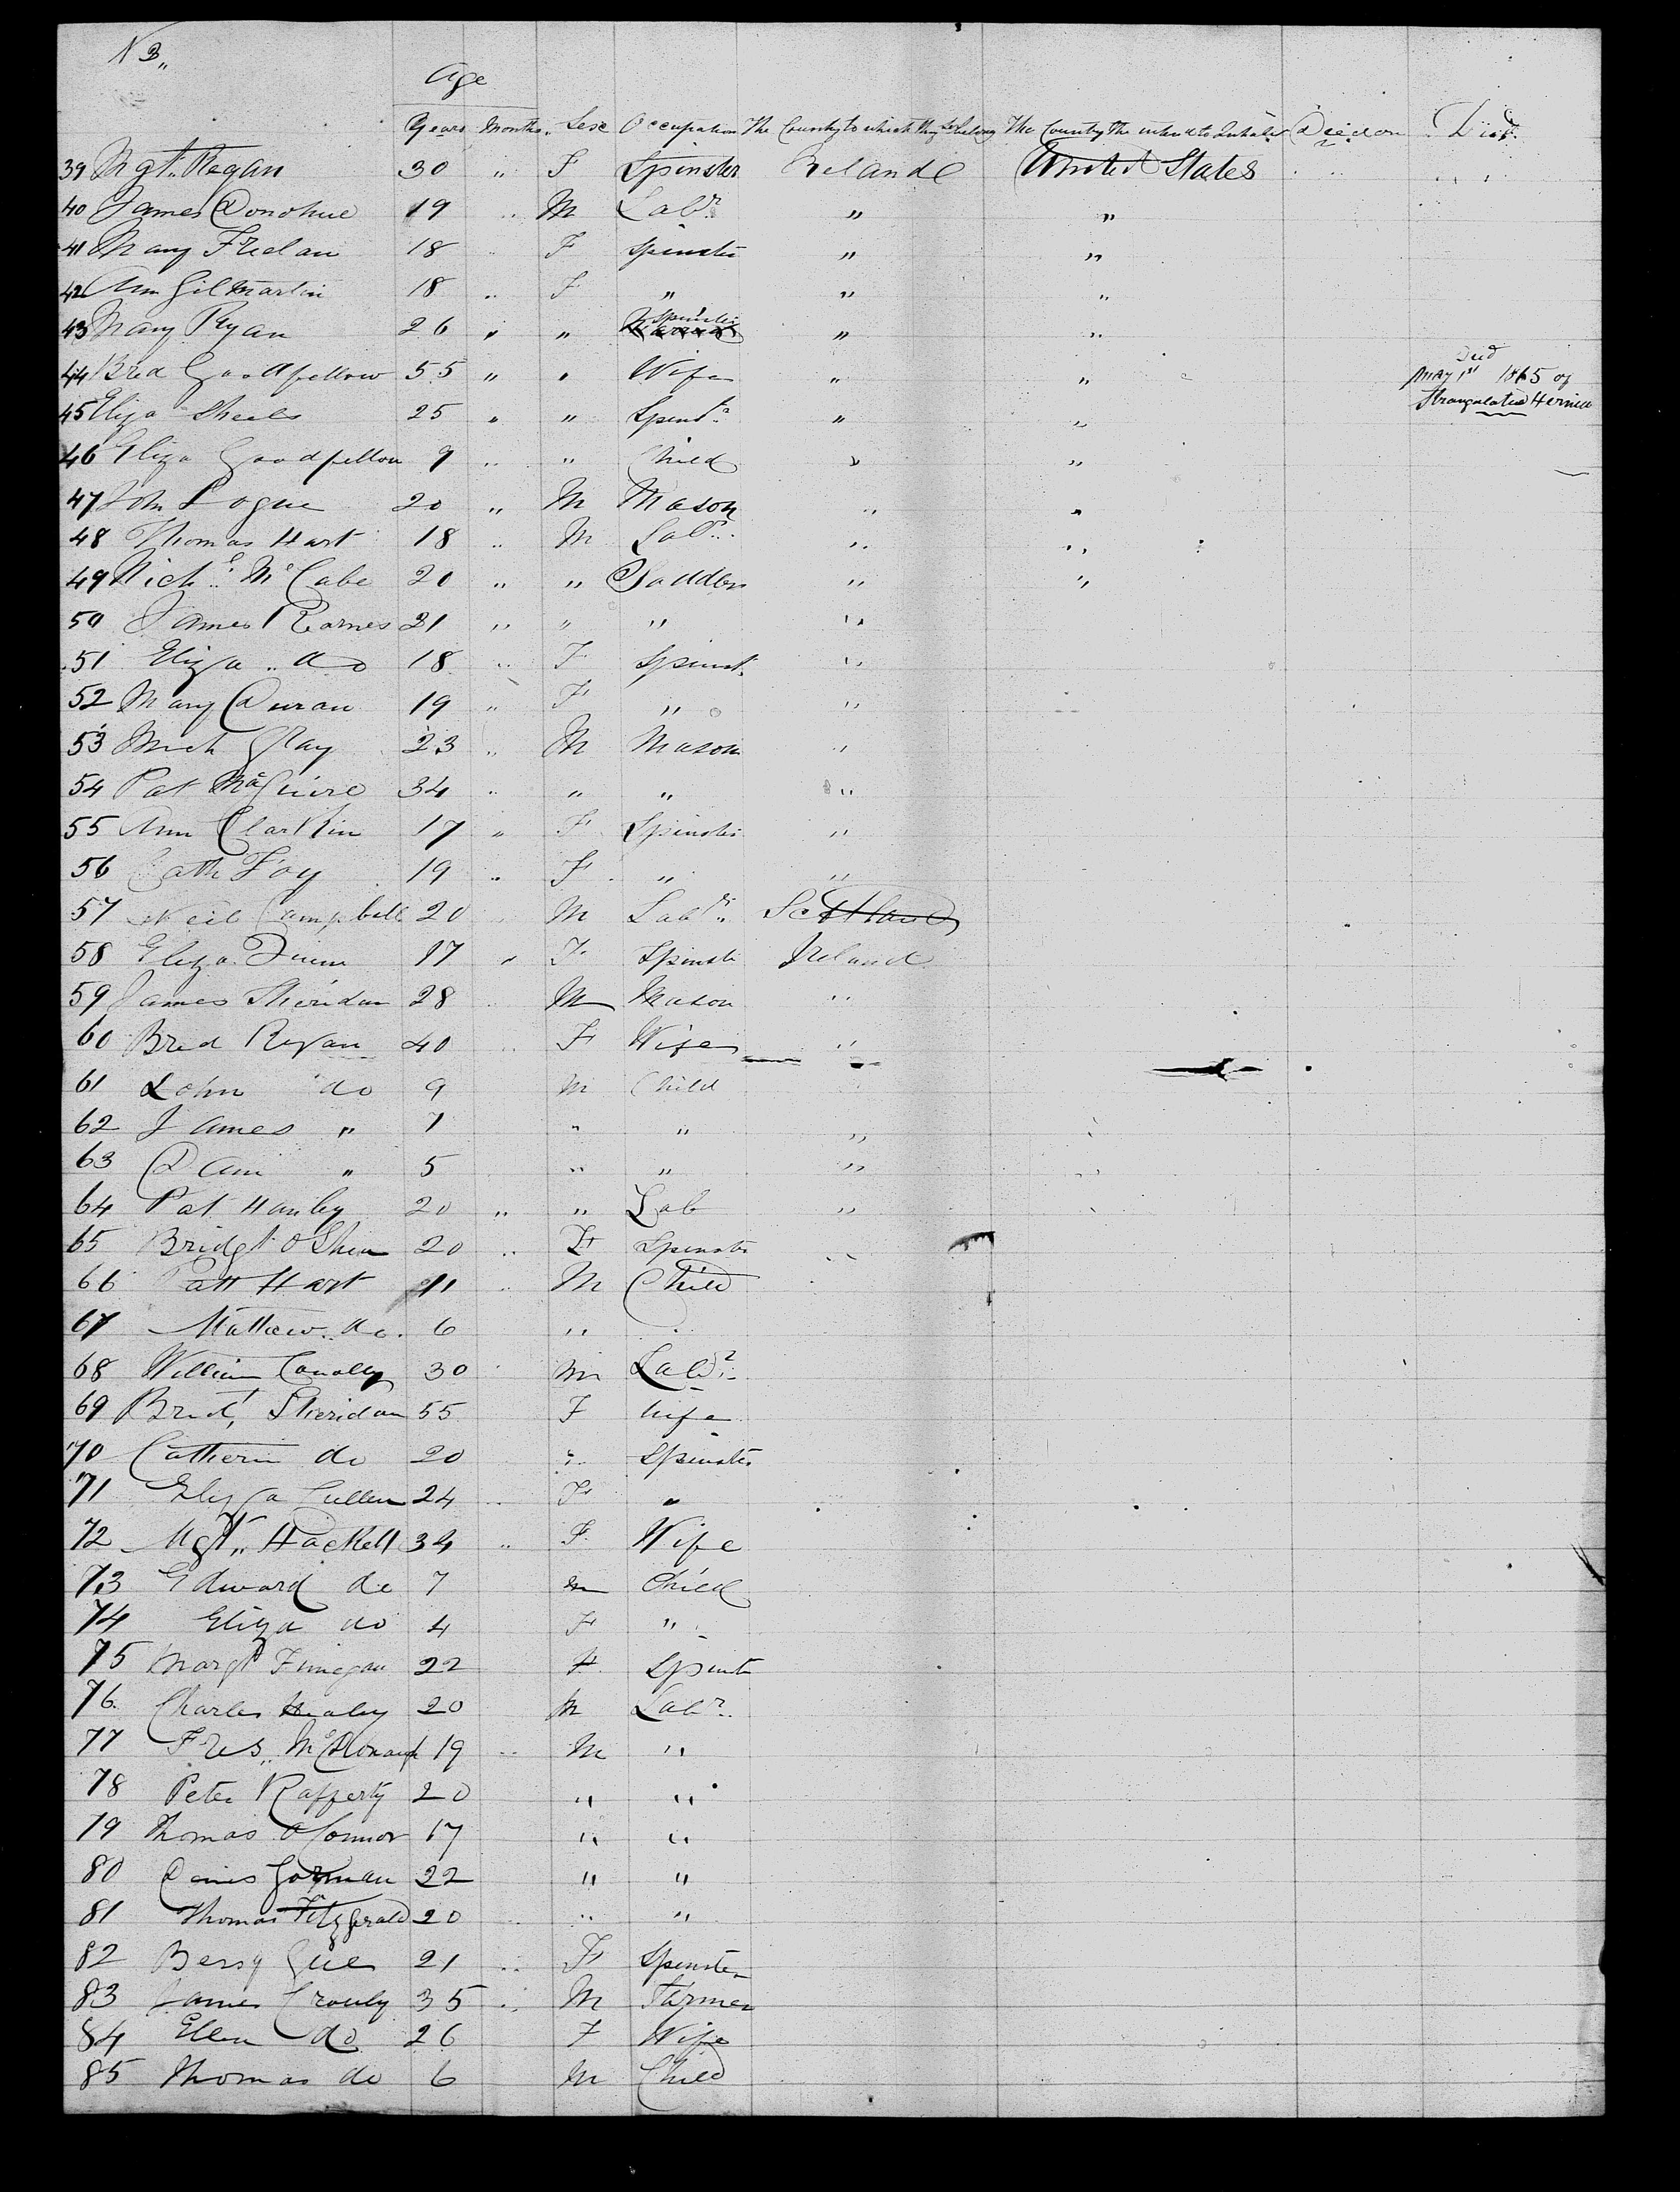 N 3 "
Age
Years Months Sex Occupation The Country to which they belong The Country the intend to Inhabit Died on
39 Mgt. Regan 30 " F Spinster Ireland United States
40 James Donohue 19 " M Labr " "
41 Mary 18 " F Spinster " "
42 Ann Gilmartin 18 " F " " "
43 Mary Ryan 26 " " Spinster " "
44 Brid Goodfellow 55 " " Wife " " Died May 1st 1865 of
45 Eliza Sheels 25 " " Spinstr " " Strangulated Hernia
46 Eliza Goodfellow 9 " " Child " "
47 John Pogue 20 " M Mason " "
48 Thomas Hart 18 " M Labr " "
49 Richd McCabe 20 " " Saddler " "
50 James 21 " " " "
51 Eliza " do 18 " F Spinst "
52 Mary Duran 19 " F " "
53 Mich Gray 23 " M Mason "
54 Pat McGuire 34 " " " "
55 Ann Clarkin 17 " F Spinster "
56 Cath Foy 19 " F " "
57 Neil Campbell 20 M Labr " Scotland
58 Eliza 17 " F Spinst Ireland
59 James Sheridan 28 " M Mason "
60 Brid Regan 40 " F Wife "
61 John do 9 M Child "
62 James " 7 " " "
63 Dani " 5 " " "
64 Pat Hanley 20 " " Lab "
65 Bridgt O Shea 20 " F Spinster "
66 Patt Hart 11 " M Child "
67 Mathew do. 6 " "
68 William Conolly 30 " M Labr
69 Bridt Sheridan 55 F Wife
70 Catherin do 20 " Spinster
71 Eliza Cullen 24 " F "
72 Mgt " Hackett 34 " F Wife
73 Edward do 7 m Child
74 Eliza do 4 F "
75 Margt Finegan 22 F Spinst
76 Charles Healey 20 M Labr
77 Fres " McDonaugh 19 " M "
78 Peter Rafferty 20 " "
79 Thomas O Connor 17 " "
80 Denis Gorman 22 " "
81 Thomas Fitzgerald 20 " " "
82 Bessy 21 " F Spinster
83 James Crowly 35 " M Farmer
84 Ellen do 26 F Wife
85 Thomas do 6 M Child